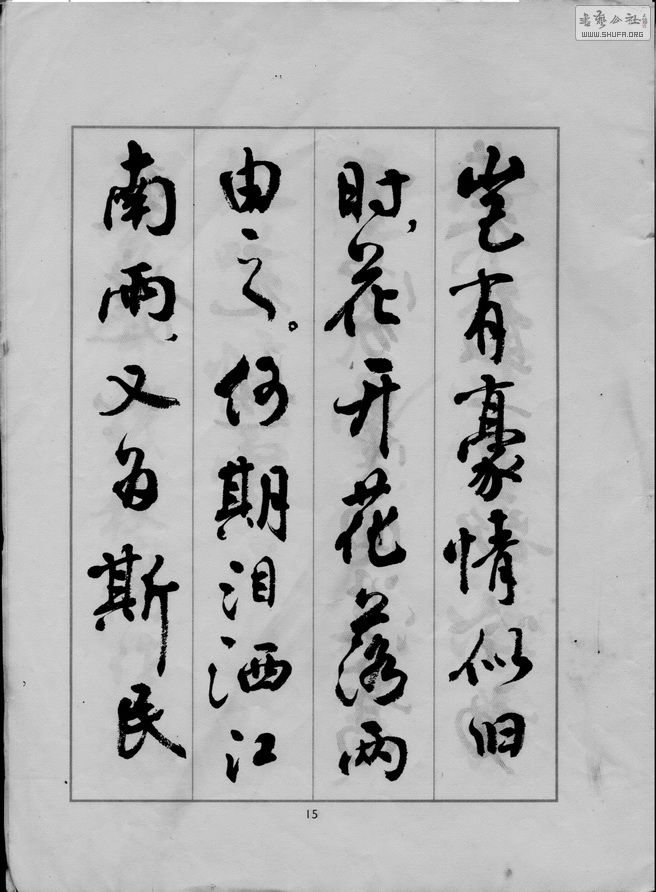 岂有豪情似旧
时，花开花落两
由之。何期泪洒江
南雨，又为斯民
15
書藝公社
WWW.SHUFA.ORG